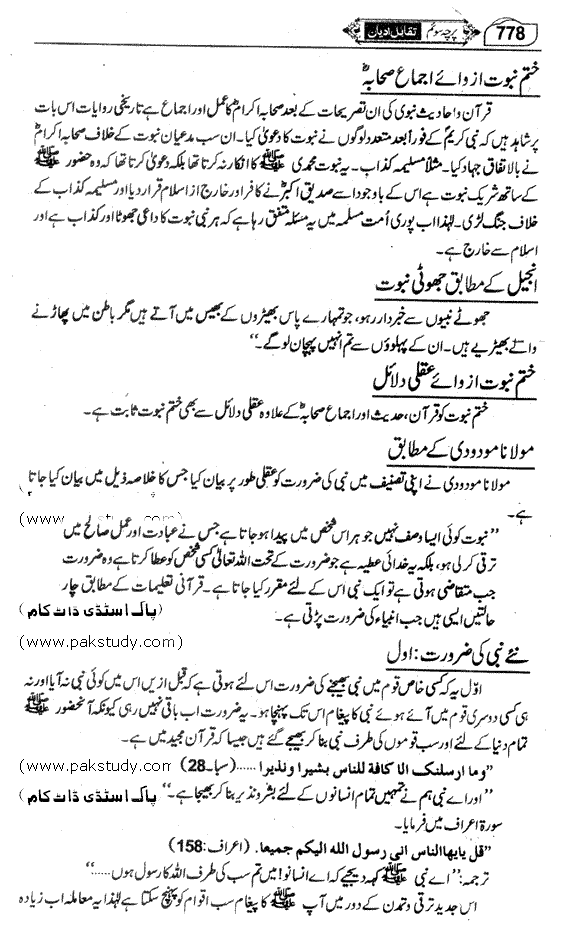 778 پرچہ سوئم تقابل ادیان
ختم نبوت ازروائے اجماع صحابہؓ
قرآن و احادیث نبوی کی ان تصریحات کے بعد صحابہ اکرامؓ کا عمل اور اجماع ہے تاریخی روایات اس بات
پر شاہد ہیں کہ نبی کریمؐ کے فوراً بعد متعدد لوگوں نے نبوت کا دعویٰ کیا۔ ان سب مدعیان نبوت کے خلاف صحابہ اکرامؓ
نے بالاتفاق جہاد کیا۔ مثلاً مسلیمہ کذاب۔ یہ نبوت محمدی ﷺ کا انکار نہ کرتا تھا بلکہ دعویٰ کرتا تھا کہ وہ حضور ﷺ
کے ساتھ شریک نبوت ہے اس کے باوجود اسے صدیق اکبرؓ نے کافر اور خارج از اسلام قرار دیا اور مسلیمہ کذاب کے
خلاف جنگ لڑی۔ لہٰذا اب پوری اُمت مسلمہ میں یہ مسئلہ متفق رہا ہے کہ ہر نبی نبوت کا داعی جھوٹا اور کذاب ہے اور
اسلام سے خارج ہے۔
انجیل کے مطابق جھوٹی نبوت
جھوٹے نبیوں سے خبردار رہو، جو تمہارے پاس بھیڑوں کے بھیس میں آتے ہیں مگر باطن میں پھاڑنے
والے بھیڑیے ہیں۔ ان کے پہلوؤں سے تم انہیں پہچان لو گے۔“
ختم نبوت ازروائے عقلی دلائل
ختم نبوت کو قرآن، حدیث اور اجماع صحابہؓ کے علاوہ عقلی دلائل سے بھی ختم نبوت ثابت ہے۔
مولانا مودودی کے مطابق
مولانا مودودی نے اپنی تصنیف میں نبی کی ضرورت کو عقلی طور پر بیان کیا جس کا خلاصہ ذیل میں بیان کیا جاتا
ہے۔
(www.
”نبوت کوئی ایسا وصف نہیں جو ہر اس شخص میں پیدا ہو جاتا ہے جس نے عبادت اور عمل صالح میں
ترقی کر لی ہو، بلکہ یہ خدائی عطیہ ہے جو ضرورت کے تحت اللہ تعالیٰ کسی شخص کو عطا کرتا ہے وہ ضرورت
جب متقاضی ہوتی ہے تو ایک نبی اس کے لئے مقرر کیا جاتا ہے۔ قرآنی تعلیمات کے مطابق چار
حالتیں ایسی ہیں جب انبیاء کی ضرورت پڑتی ہے۔ (پاک اسٹڈی ڈاٹ کام)
(www.pakstudy.com)
نئے نبی کی ضرورت: اول
اوّل یہ کہ کسی خاص قوم میں نبی بھیجنے کی ضرورت اس لئے ہوتی ہے کہ قبل ازیں اس میں کوئی نبی نہ آیا اور نہ
ہی کسی دوسری قوم میں آئے ہوئے نبی کا پیغام اس تک پہنچا ہو۔ یہ ضرورت اب باقی نہیں رہی کیونکہ آنحضور ﷺ
تمام دنیا کے لئے اور سب قوموں کی طرف نبی بنا کر بھیجے گئے ہیں جیسا کہ قرآن مجید میں ہے۔
”وما ارسلنک الا کافۃ للناس بشیرا ونذیرا ......(سبا۔28) (www.pakstudy.com
”اور اے نبی ہم نے تمہیں تمام انسانوں کے لئے بشر و نذیر بنا کر بھیجا ہے۔“ پاک اسٹڈی ڈاٹ کام)
سورۃ اعراف میں فرمایا۔
”قل یایھاالناس انی رسول اللہ الیکم جمیعا۔ (اعراف:158)
ترجمہ: ”اے نبی ﷺ کہہ دیجیے کہ اے انسانو! میں تم سب کی طرف اللہ کا رسول ہوں......“
اس جدید ترقی و تمدن کے دور میں آپ ﷺ کا پیغام سب اقوام کو پہنچ سکتا ہے لہٰذا یہ معاملہ اب زیادہ